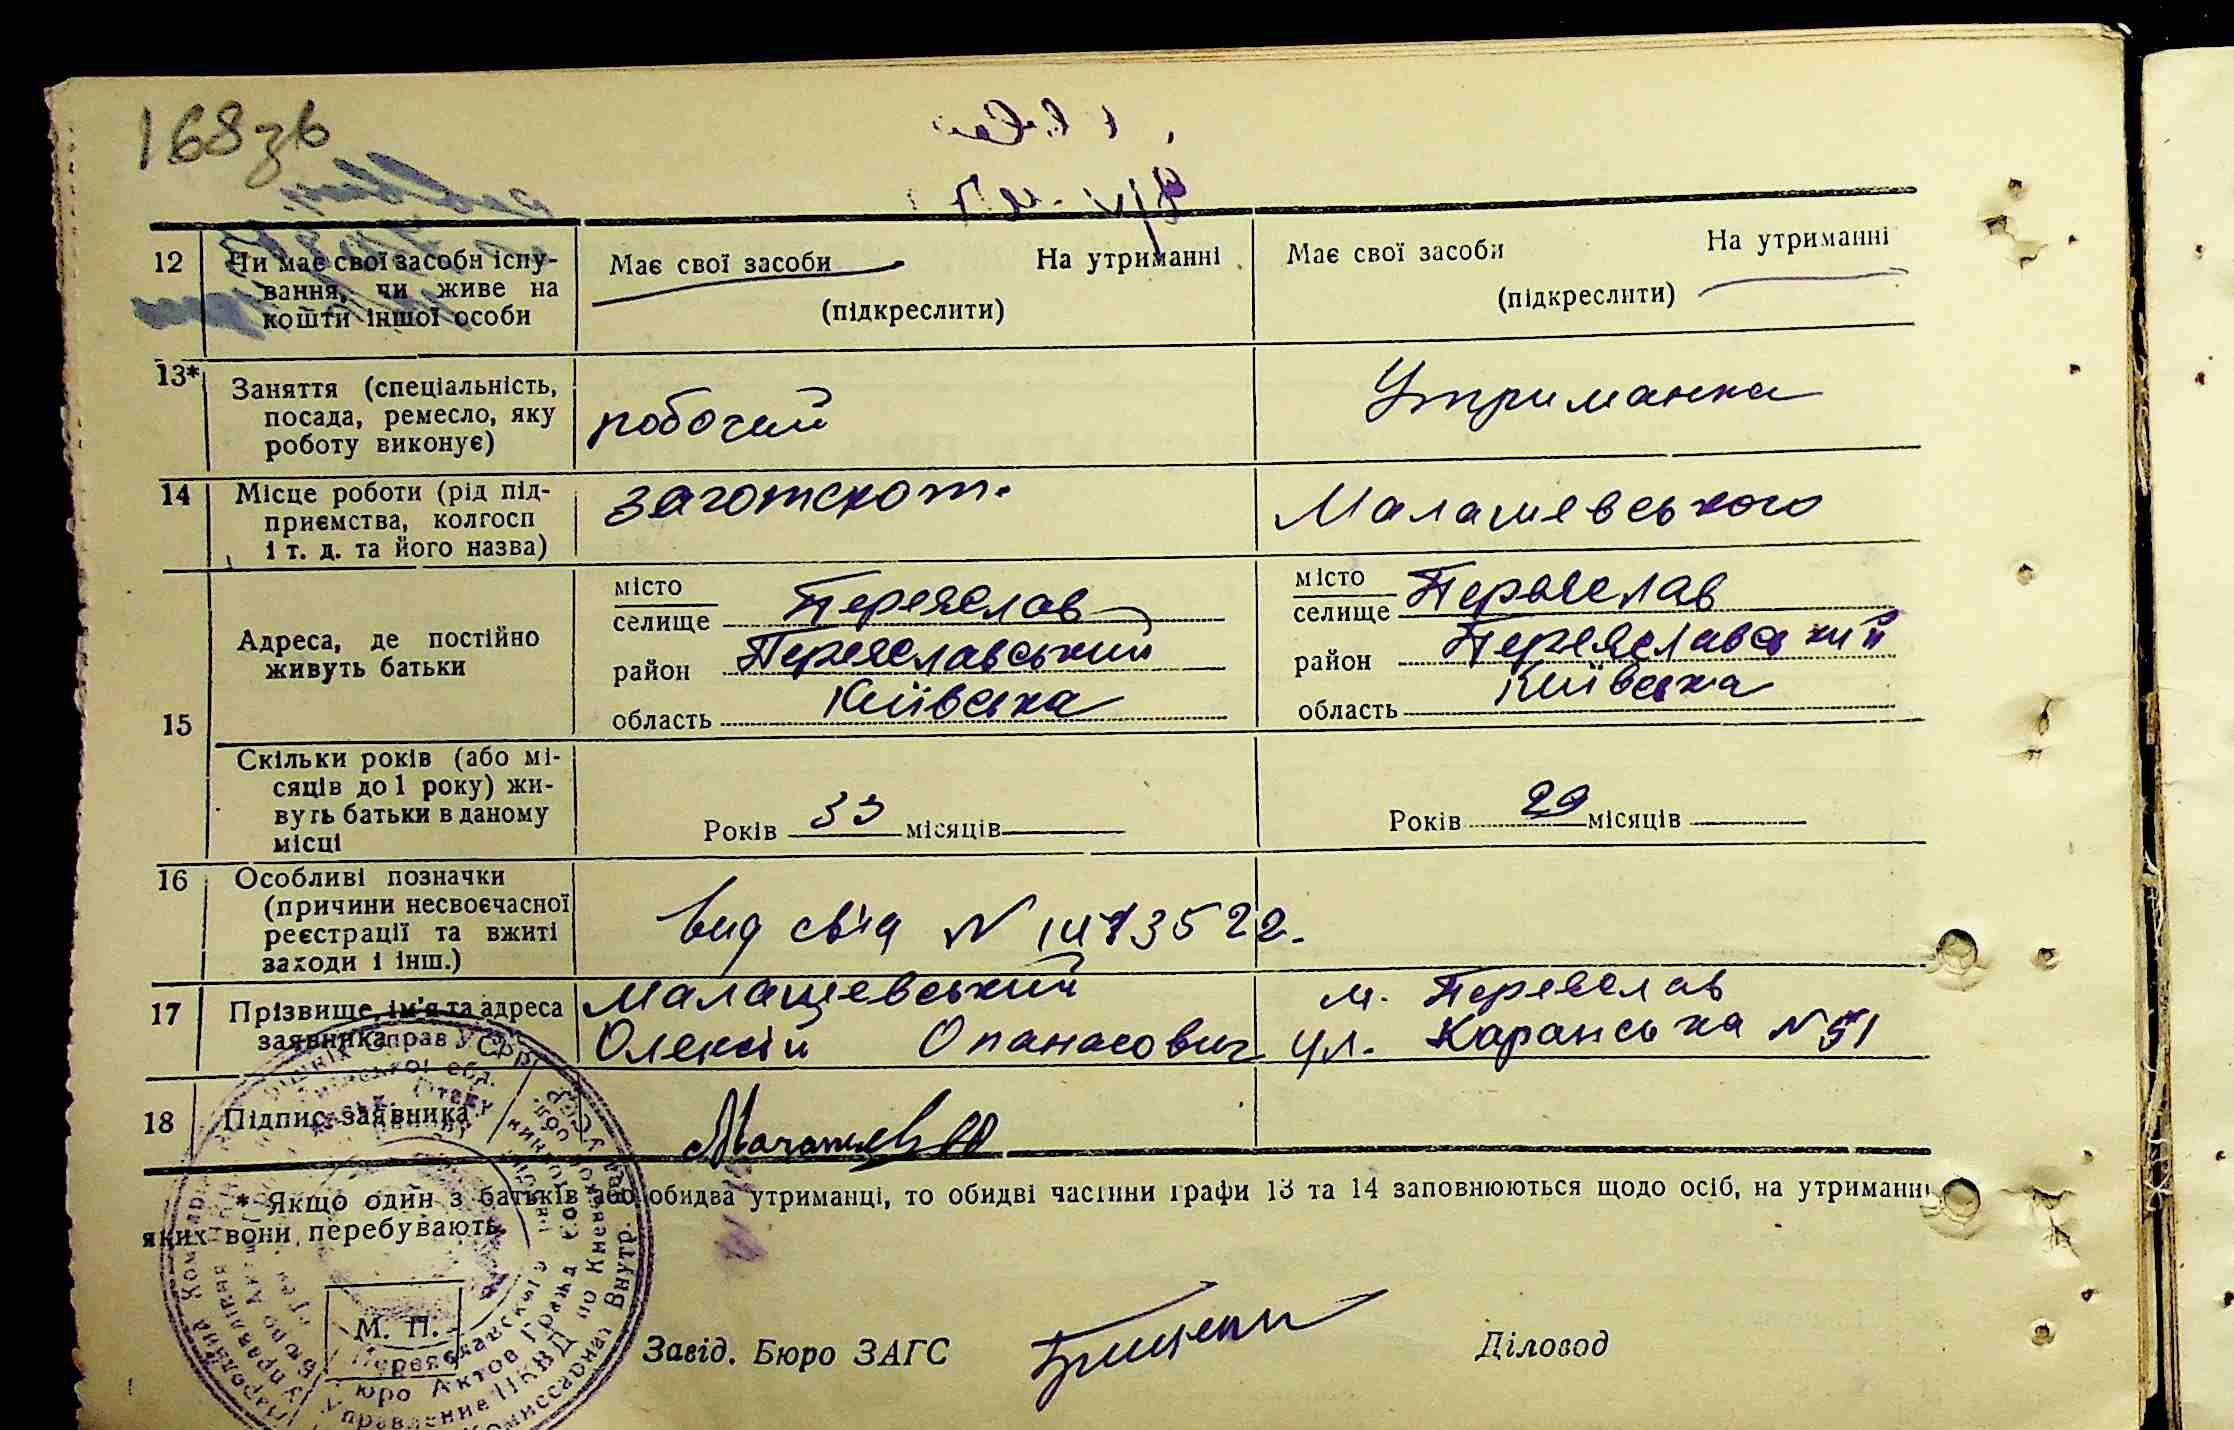 168 зв
12
Чи має свої засоби існу-
вання, чи живе на
кошти іншої особи
Має свої засоби На утриманні
(підкреслити)
Має свої засоби На утриманні
(підкреслити)
13*
Заняття (спеціальність,
посада, ремесло, яку
роботу виконує)
робочий
Утриманка
14
Місце роботи (рід під-
приємства, колгосп
і т. д. та його назва)
заготскот.
Малашевського
15
Адреса, де постійно
живуть батьки
місто
селище Переяслав
район Переяславський
область Київська
місто
селище Переяслав
район Переяславський
область Київська
Скільки років (або мі-
сяців до 1 року) жи-
вуть батьки в даному
місці
Років 33 місяців
Років 29 місяців
16
Особливі позначки
(причини несвоєчасної
реєстрації та вжиті
заходи і інш.)
вид свід N
17
Прізвище, ім'я та адреса
заявника
Малашевський
Олексій Опанасович
м. Переяслав
ул. Каранська N 51
18
Підпис заявника
* Якщо один з батьків або обидва утриманці, то обидві частини графи 13 та 14 заповнюються щодо осіб, на утриманні
яких вони перебувають.
М. П.
Завід. Бюро ЗАГС
Діловод